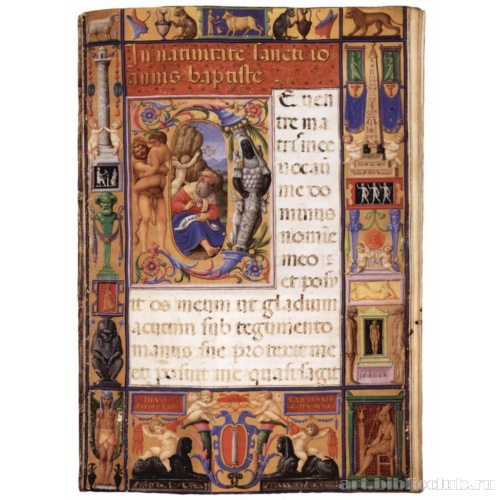 In nativitate sancti io
annis baptiste
E ven
tre ma
tris mee
vocavit
me do
minus
nomine
meo:
et posu
it os meum ut gladium
acutum sub tegumento
manus sue protexit me
et posuit me quasi sagit
DIVO
POMPEIO
CARDINALI
COLVMNA
art.biblioclub.ru